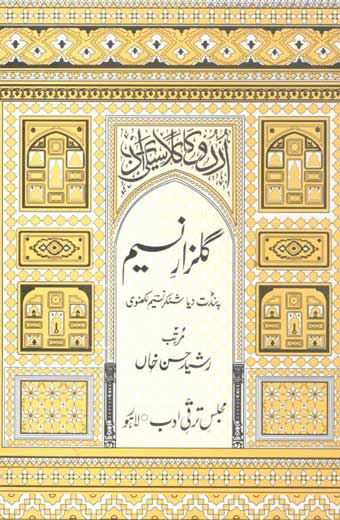 اُردو کا کلاسیکی ادب
گلزارِ نسیم
پنڈت دیا شنکر نسیم لکھنوی
مُرتّبہ
رشید حسن خاں
مجلسِ ترقیِ ادب ○ لاہور